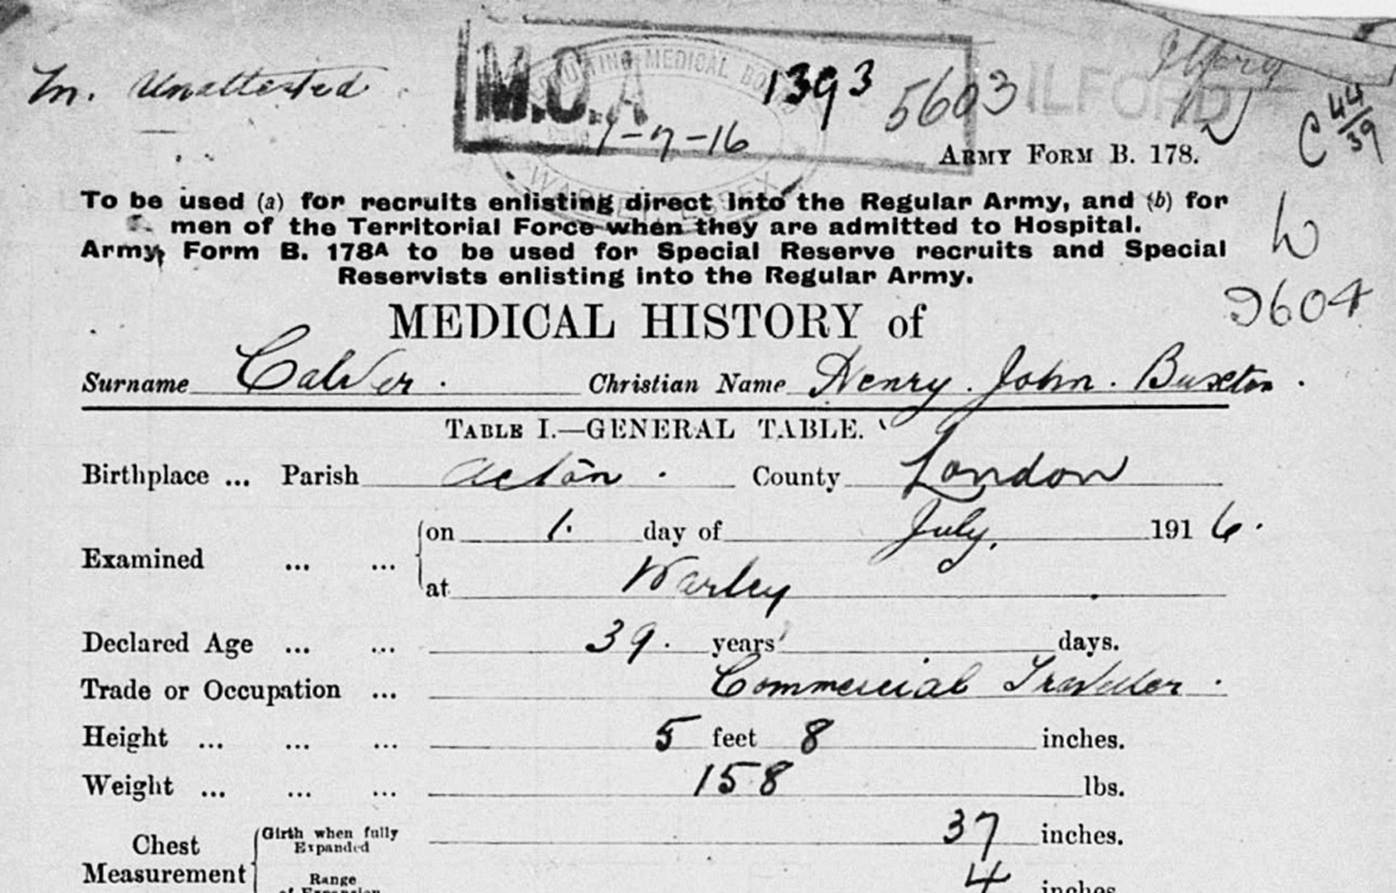 In. Unattested
M.O.A
RECRUITING MEDICAL BOARD
WARLEY, ESSEX
1-7-16
1393
5603
ILFORD
Ilford
C 44/39
ARMY FORM B. 178.
To be used (a) for recruits enlisting direct into the Regular Army, and (b) for
men of the Territorial Force when they are admitted to Hospital.
Army Form B. 178A to be used for Special Reserve recruits and Special
Reservists enlisting into the Regular Army.
9604
MEDICAL HISTORY of
Surname Calver. Christian Name Henry. John. Buxton.
TABLE I.—GENERAL TABLE.
Birthplace ... Parish Acton. County London
Examined ... ... on 1. day of July, 1916.
at Warley
Declared Age ... ... 39. years days.
Trade or Occupation ... Commercial Traveller.
Height ... ... ... 5 feet 8 inches.
Weight ... ... ... 158 lbs.
Chest Measurement Girth when fully Expanded 37 inches.
Range of Expansion 4 inches